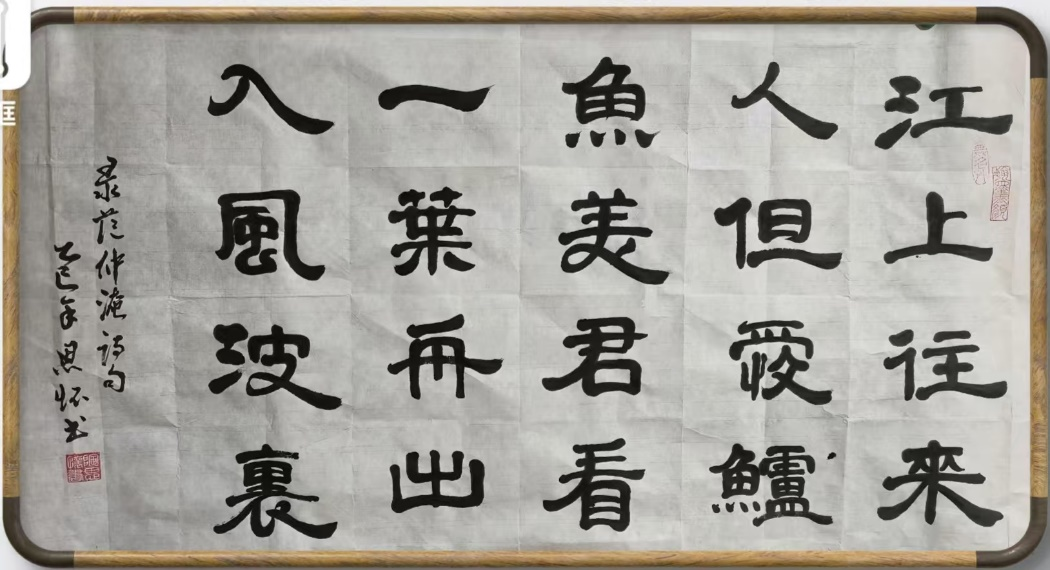 江上往來
人但愛鱸
魚美君看
一葉舟出
入風波裏
录范仲淹诗句
乙巳年思怀书